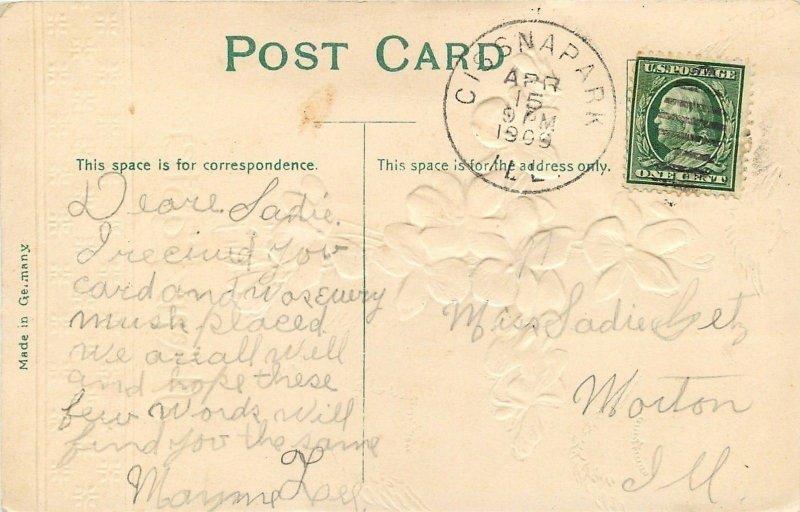 POST CARD
CISSNAPARK
APR
15
9 PM
1909
ILL
U.S. POSTAGE
ONE CENT
This space is for correspondence.
This space is for the address only.
Made in Germany.
Deare Sadie.
I recived you
card and was every
mush placed
We ar all well
and hope these
few words will
find you the same
Mayme
Miss Sadie Getz
Morton
Ill.